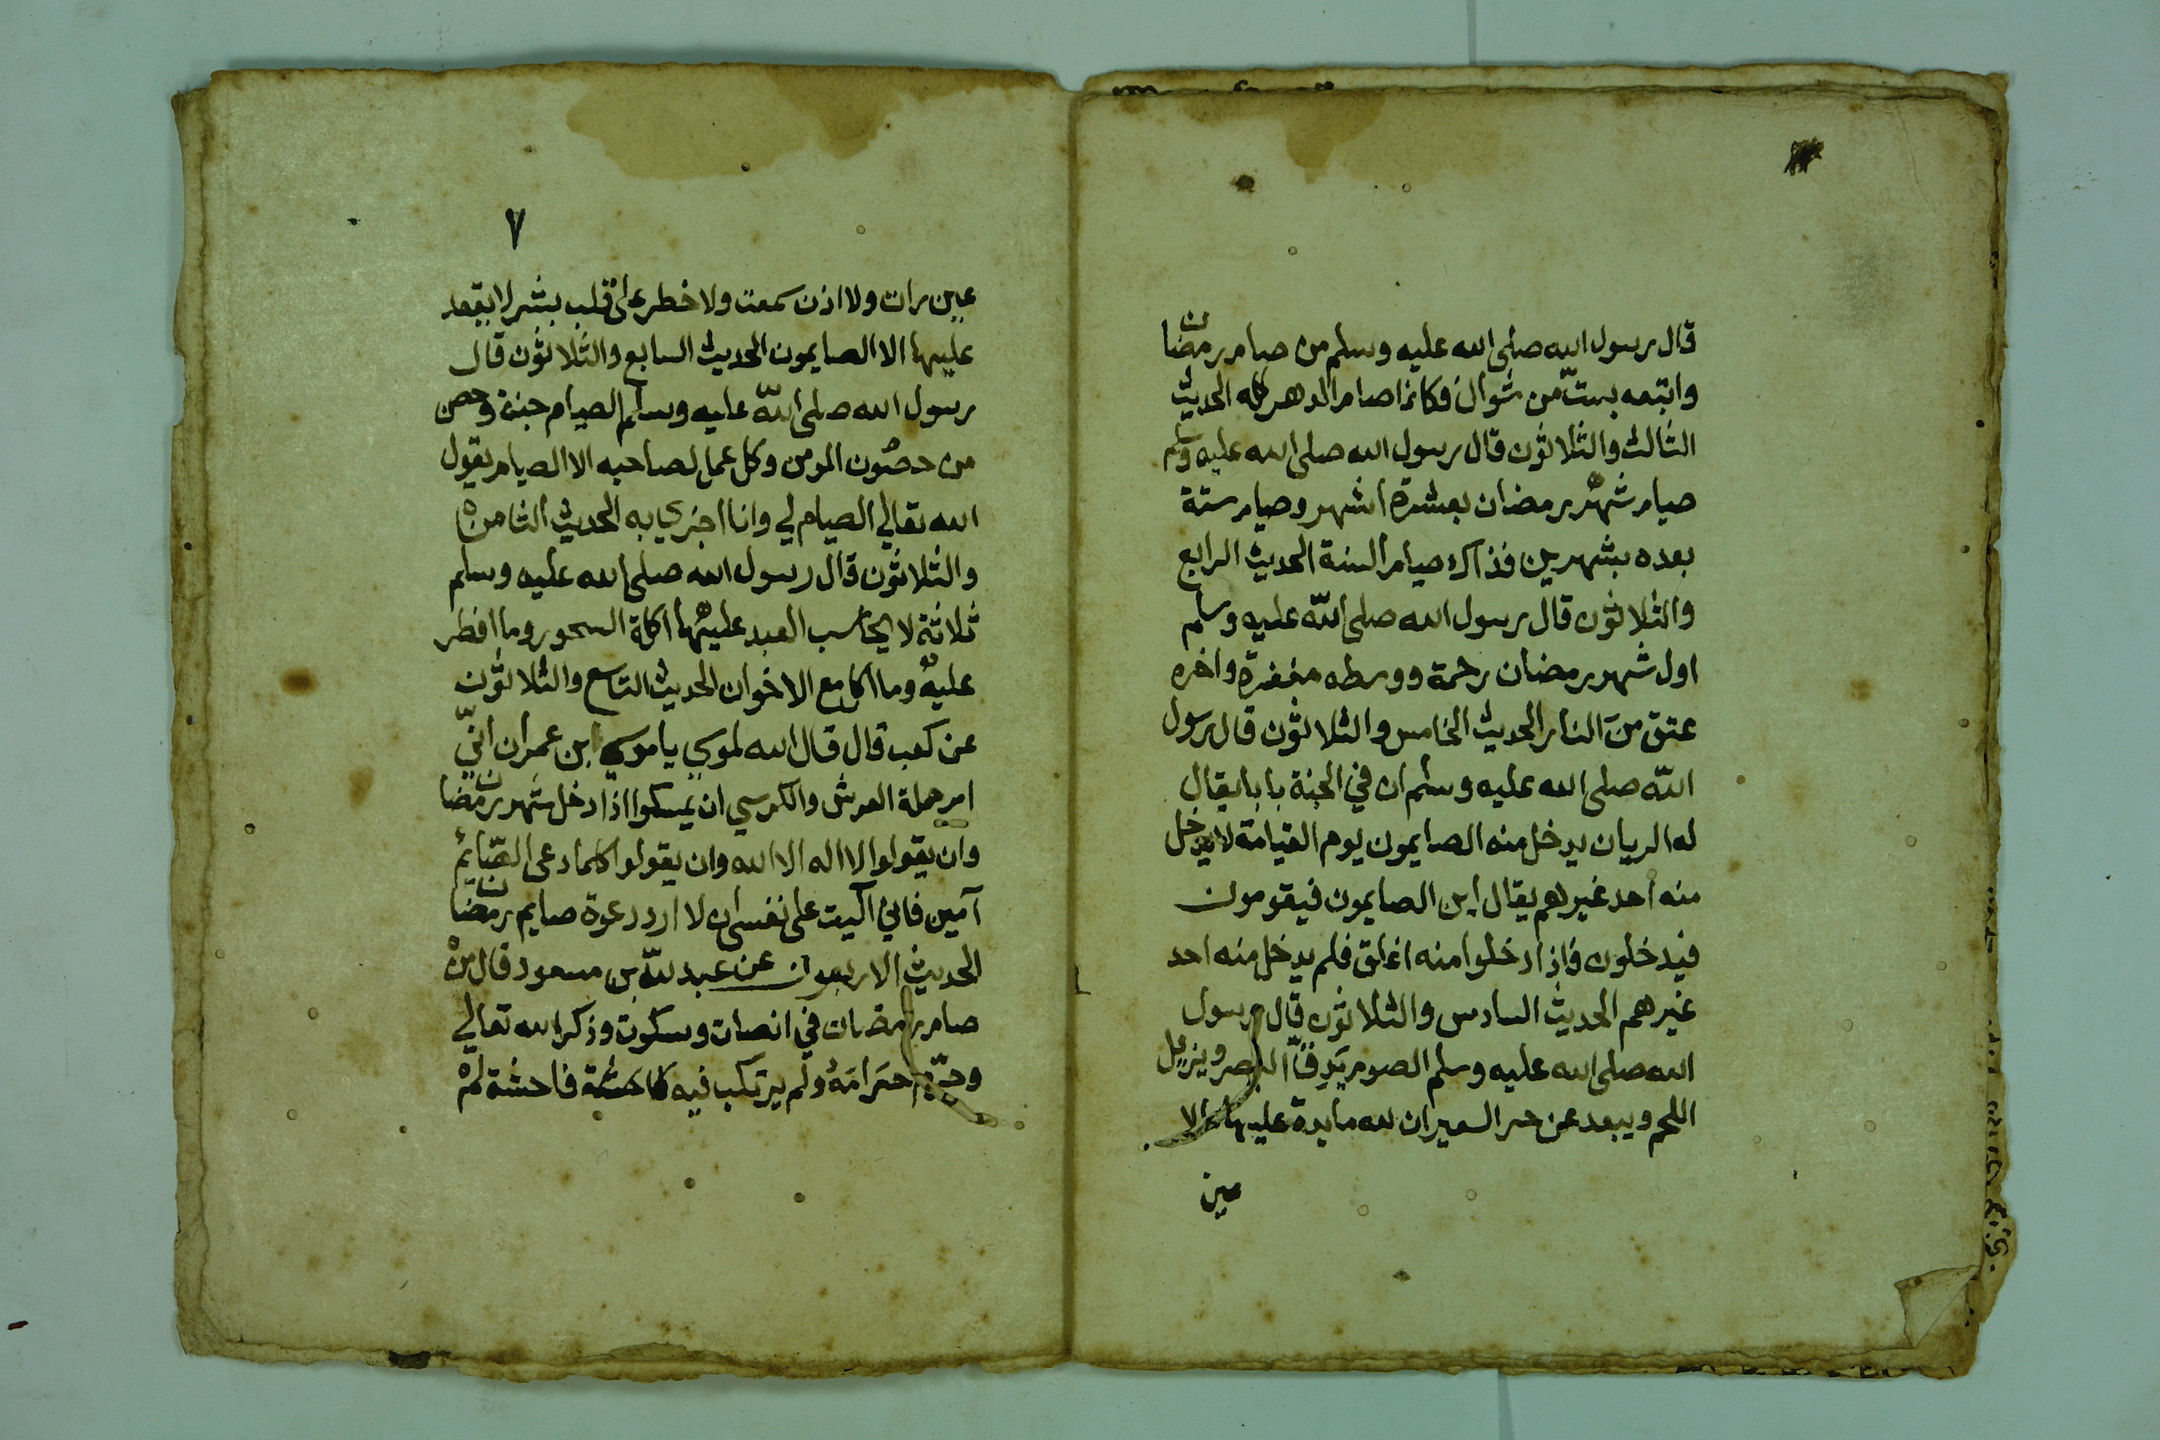 قال رسول الله صلى الله عليه وسلم من صام رمضان
واتبعه بست من شوال فكانما صام الدهر كله الحديث
الثالث والثلاثون قال رسول الله صلى الله عليه وسلم
صيام شهر رمضان بعشرة اشهر وصيام ستة
بعده بشهرين فذالك صيام السنة الحديث الرابع
والثلاثون قال رسول الله صلى الله عليه وسلم
اول شهر رمضان رحمة ووسطه مغفرة واخره
عتق من النار الحديث الخامس والثلاثون قال رسول
الله صلى الله عليه وسلم ان في الجنة بابا يقال
له الريان يدخل منه الصايمون يوم القيامة لا يدخل
منه احد غيرهم يقال اين الصايمون فيقومون
فيدخلون فاذا دخلوا منه اغلق فلم يدخل منه احد
غيرهم الحديث السادس والثلاثون قال رسول
الله صلى الله عليه وسلم الصوم ويزيل
اللحم ويبعد عن حر السعير ان لله مايدة عليها مالا
عين
٧
عين رات ولا اذن سمعت ولا خطر على قلب بشر لا يقعد
عليها الا الصايمون الحديث السابع والثلاثون قال
رسول الله صلى الله عليه وسلم الصيام جنة وحصن
من حصون المومن وكل عمل لصاحبه الا الصيام يقول
الله تعالي الصيام لي وانا اجزي به الحديث الثامن
والثلاثون قال رسول الله صلى الله عليه وسلم
ثلاثة لا يحاسب العبد عليها اكلة السحور وما افطر
عليه وما اكل مع الاخوان الحديث التاسع والثلاثون
عن كعب قال قال الله لموسي يا موسي ابن عمران اني
امر حملة العرش والكرسي ان يمسكوا اذا دخل شهر رمضان
وان يقولوا لا اله الا الله وان يقولوا كلما دعى الصايم
آمين فاني آليت على نفسي ان لا ارد دعوة صايم رمضان
الحديث الاربعون عن عبد لله بن مسعود قال من
صام رمضان في انصات وسكوت وذكر الله تعالي
وحرم حرامه ولم يرتكب فيه فاحشة لم